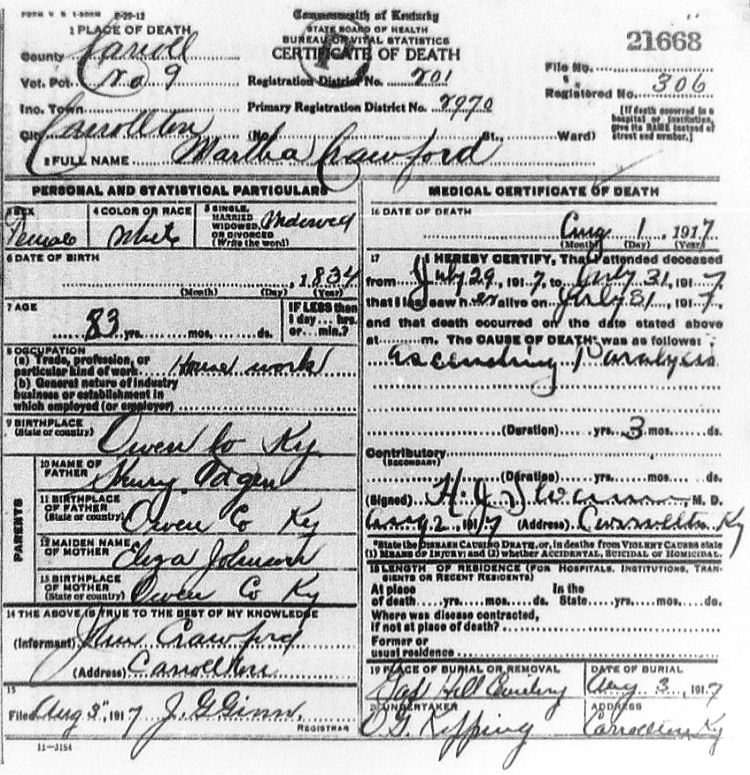 FORM V. S. 1-500M 8-29-12
Commonwealth of Kentucky
STATE BOARD OF HEALTH
BUREAU OF VITAL STATISTICS
CERTIFICATE OF DEATH
1 PLACE OF DEATH
County Carroll
Vot. Pct. No 9
Registration District No. 201
Inc. Town
Primary Registration District No. 2970
21668
File No.
Registered No. 306
[If death occurred in a
hospital or institution,
give its NAME instead of
street and number.]
City Carrollton (No. St., Ward)
2 FULL NAME Martha Crawford
PERSONAL AND STATISTICAL PARTICULARS
3 SEX
Female
4 COLOR OR RACE
White
5 SINGLE,
MARRIED,
WIDOWED,
OR DIVORCED
(Write the word)
6 DATE OF BIRTH
, 1834
(Month) (Day) (Year)
7 AGE
83 yrs. mos. ds.
IF LESS than
1 day... hrs.
or... min.?
8 OCCUPATION
(a) Trade, profession, or
particular kind of work House work
(b) General nature of industry
business or establishment in
which employed (or employer)
9 BIRTHPLACE
(State or country) Owen Co Ky.
PARENTS
10 NAME OF
FATHER Henry
11 BIRTHPLACE
OF FATHER
(State or country) Owen Co Ky
12 MAIDEN NAME
OF MOTHER Eliza Johnson
13 BIRTHPLACE
OF MOTHER
(State or country) Owen Co Ky
14 THE ABOVE IS TRUE TO THE BEST OF MY KNOWLEDGE
(Informant) Crawford
(Address) Carrollton
15
Filed Aug 3", 1917 J. G. Ginn,
REGISTRAR
11-3184
MEDICAL CERTIFICATE OF DEATH
16 DATE OF DEATH
Aug 1, 1917
(Month) (Day) (Year)
17 I HEREBY CERTIFY, That I attended deceased
from July 29, 1917, to July 31, 1917,
that I last saw her alive on July 31, 1917,
and that death occurred on the date stated above
at m. The CAUSE OF DEATH* was as follows:
Ascending Paralysis
(Duration) yrs. 3 mos. ds.
Contributory
(SECONDARY)
(Duration) yrs. mos. ds.
(Signed) H. J. M. D.
Aug 2, 1917 (Address) Carrollton Ky
*State the DISEASE CAUSING DEATH, or, in deaths from VIOLENT CAUSES state
(1) MEANS OF INJURY; and (2) whether ACCIDENTAL, SUICIDAL or HOMICIDAL.
18 LENGTH OF RESIDENCE (FOR HOSPITALS, INSTITUTIONS, TRAN-
SIENTS OR RECENT RESIDENTS)
At place
of death yrs. mos. ds.
In the
State yrs. mos. ds.
Where was disease contracted,
if not at place of death?
Former or
usual residence
19 PLACE OF BURIAL OR REMOVAL
Hill Cemetery
DATE OF BURIAL
Aug 3, 1917
20 UNDERTAKER
O. G. Kipping
ADDRESS
Carrollton Ky